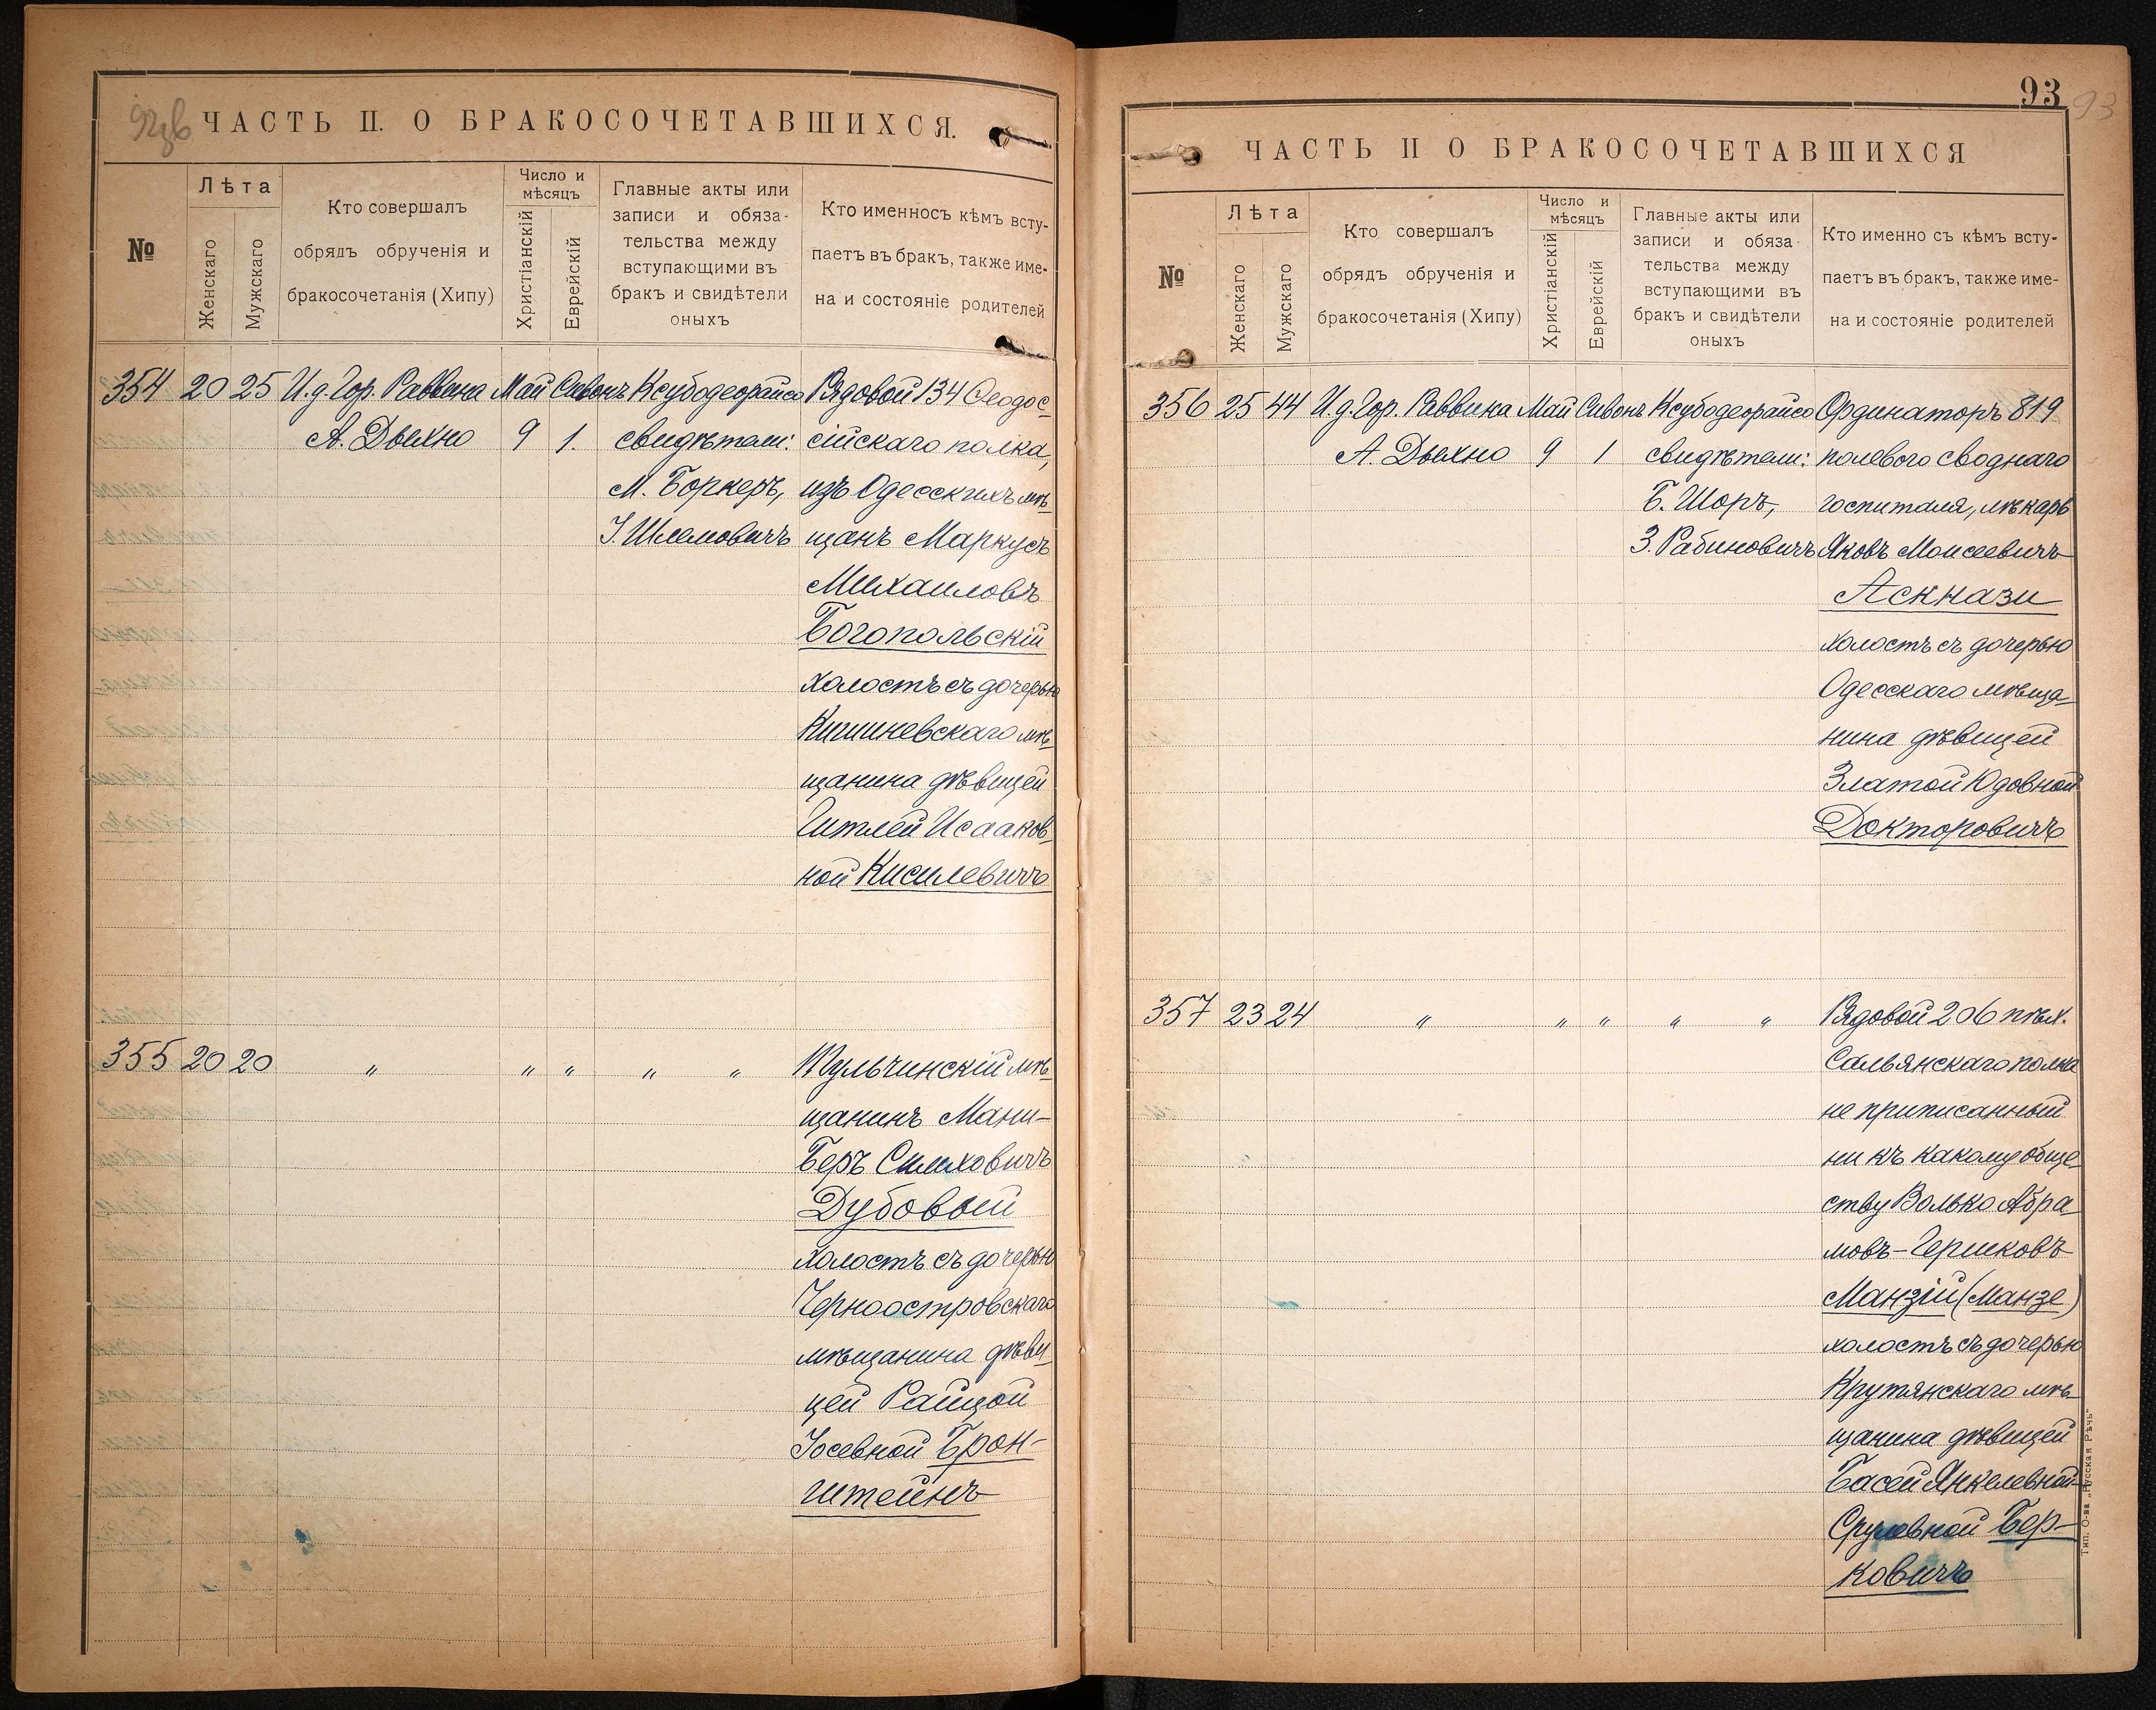 92 об
ЧАСТЬ II. О БРАКОСОЧЕТАВШИХСЯ.
№
Лѣта
Женскаго
Мужскаго
Кто совершалъ
обрядъ обрученія и
бракосочетанія (Хипу)
Число и
мѣсяцъ
Христіанскій
Еврейскій
Главные акты или
записи и обяза-
тельства между
вступающими въ
бракъ и свидѣтели
оныхъ
Кто именносъ кѣмъ всту-
паетъ въ бракъ, также име-
на и состояніе родителей
354 20 25 И.д. Гор. Раввина Май Сивонъ Ксубодеорайсо Рядовой 134 Ѳеодос-
А. Дыхно 9 1. свидѣтели: сійскаго полка,
М. Боркеръ, изъ Одесскихъ мѣ-
І. Шлемовичъ щанъ Маркусъ
Михаиловъ
Богопольскій
холостъ съ дочерью
Кишиневскаго мѣ-
щанина дѣвицей
Гитлей Исааков-
ной Кисилевичъ
355 20 20 " " " " " Тульчинскій мѣ-
щанинъ Мани-
Беръ Симховичъ
Дубовый
холостъ съ дочерью
Черноостровскаго
мѣщанина дѣви-
цей Раицой
Іосевной Брон-
штейнъ
93
93
ЧАСТЬ II О БРАКОСОЧЕТАВШИХСЯ
№
Лѣта
Женскаго
Мужскаго
Кто совершалъ
обрядъ обрученія и
бракосочетанія (Хипу)
Число и
мѣсяцъ
Христіанскій
Еврейскій
Главные акты или
записи и обяза-
тельства между
вступающими въ
бракъ и свидѣтели
оныхъ
Кто именно съ кѣмъ всту-
паетъ въ бракъ, также име-
на и состояніе родителей
356 25 44 И.д. Гор. Раввина Май Сивонъ Ксубодеорайсо Ординаторъ 819
А. Дыхно 9 1 свидѣтели: полевого своднаго
Б. Шоръ, госпиталя, лѣкарь
З. Рабиновичъ Яковъ Моисеевичъ
Аскнази
холостъ съ дочерью
Одесскаго мѣща-
нина дѣвицей
Златой Юдовной
Докторовичъ
357 23 24 " " " " " Рядовой 206 пѣх.
Сальянскаго полка
не приписанный
ни къ какому обще-
ству Волько Абра-
мовъ-Гершковъ
Манзій (Манзе)
холостъ съ дочерью
Крутянскаго мѣ-
щанина дѣвицей
Басей Янкелевной-
Срулевной Бер-
ковичъ
Тип. О-ва „Русская Рѣчь"